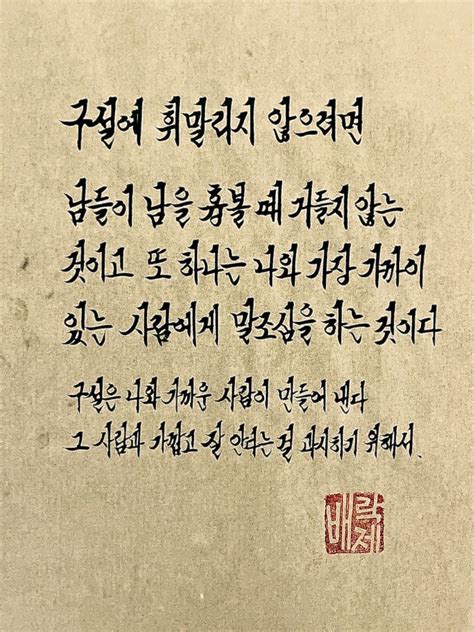 구설에 휘말리지 않으려면
남들이 남을 흉볼 때 거들지 않는
것이고 또 하나는 나와 가장 가까이
있는 사람에게 말조심을 하는 것이다
구설은 나와 가까운 사람이 만들어 낸다
그 사람과 가깝고 잘 안다는 걸 과시하기 위해서.
배락제